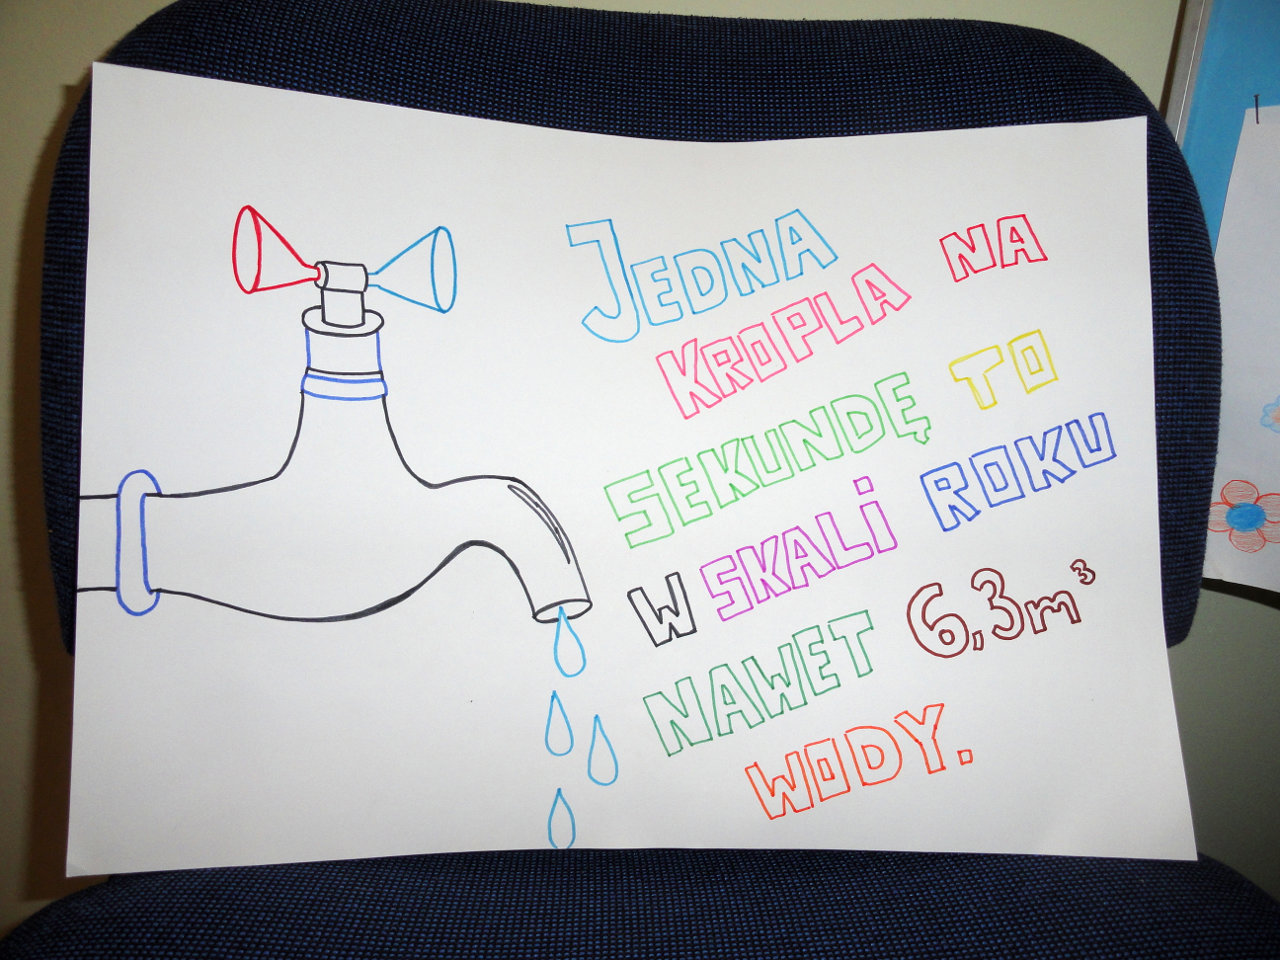 JEDNA
KROPLA NA
SEKUNDĘ TO
W SKALi ROKU
NAWET 6,3m³
WODY.